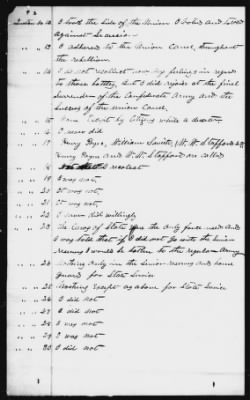 # 2
Question No. 12 I took the side of the Union I voted and talked
against Secession
" " 13 I adhered to the Union Cause, throughout
the rebellion.
" " 14 I do not recollect now my feelings in regard
to those battles, but I did rejoice at the final
surrender of the Confederate Army and the
success of the Union Cause.
" " 15 None Except by Citizens while a
" " 16 I never did
" " 17 Henry Pogue, William Sawets, (W. W. Stafford &
Henry Pogue and W. W. Stafford on called
" " 18 I recollect
" " 19 I was not,
" " 20 It was not,
" " 21 It was not,
" " 22 I never did willingly
" " 23 The laws of State was the only force used and
I was told that if I did not go with the Senior
reserves I would be taken to the regular Army
" " 24 Nothing only in the Senior reserves and home
guard for State Service
" " 25 Nothing Except as above for State Service
" " 26 I did not
" " 27 I did not.
" " 28 I was not
" " 29 I was not
" " 30 I did not